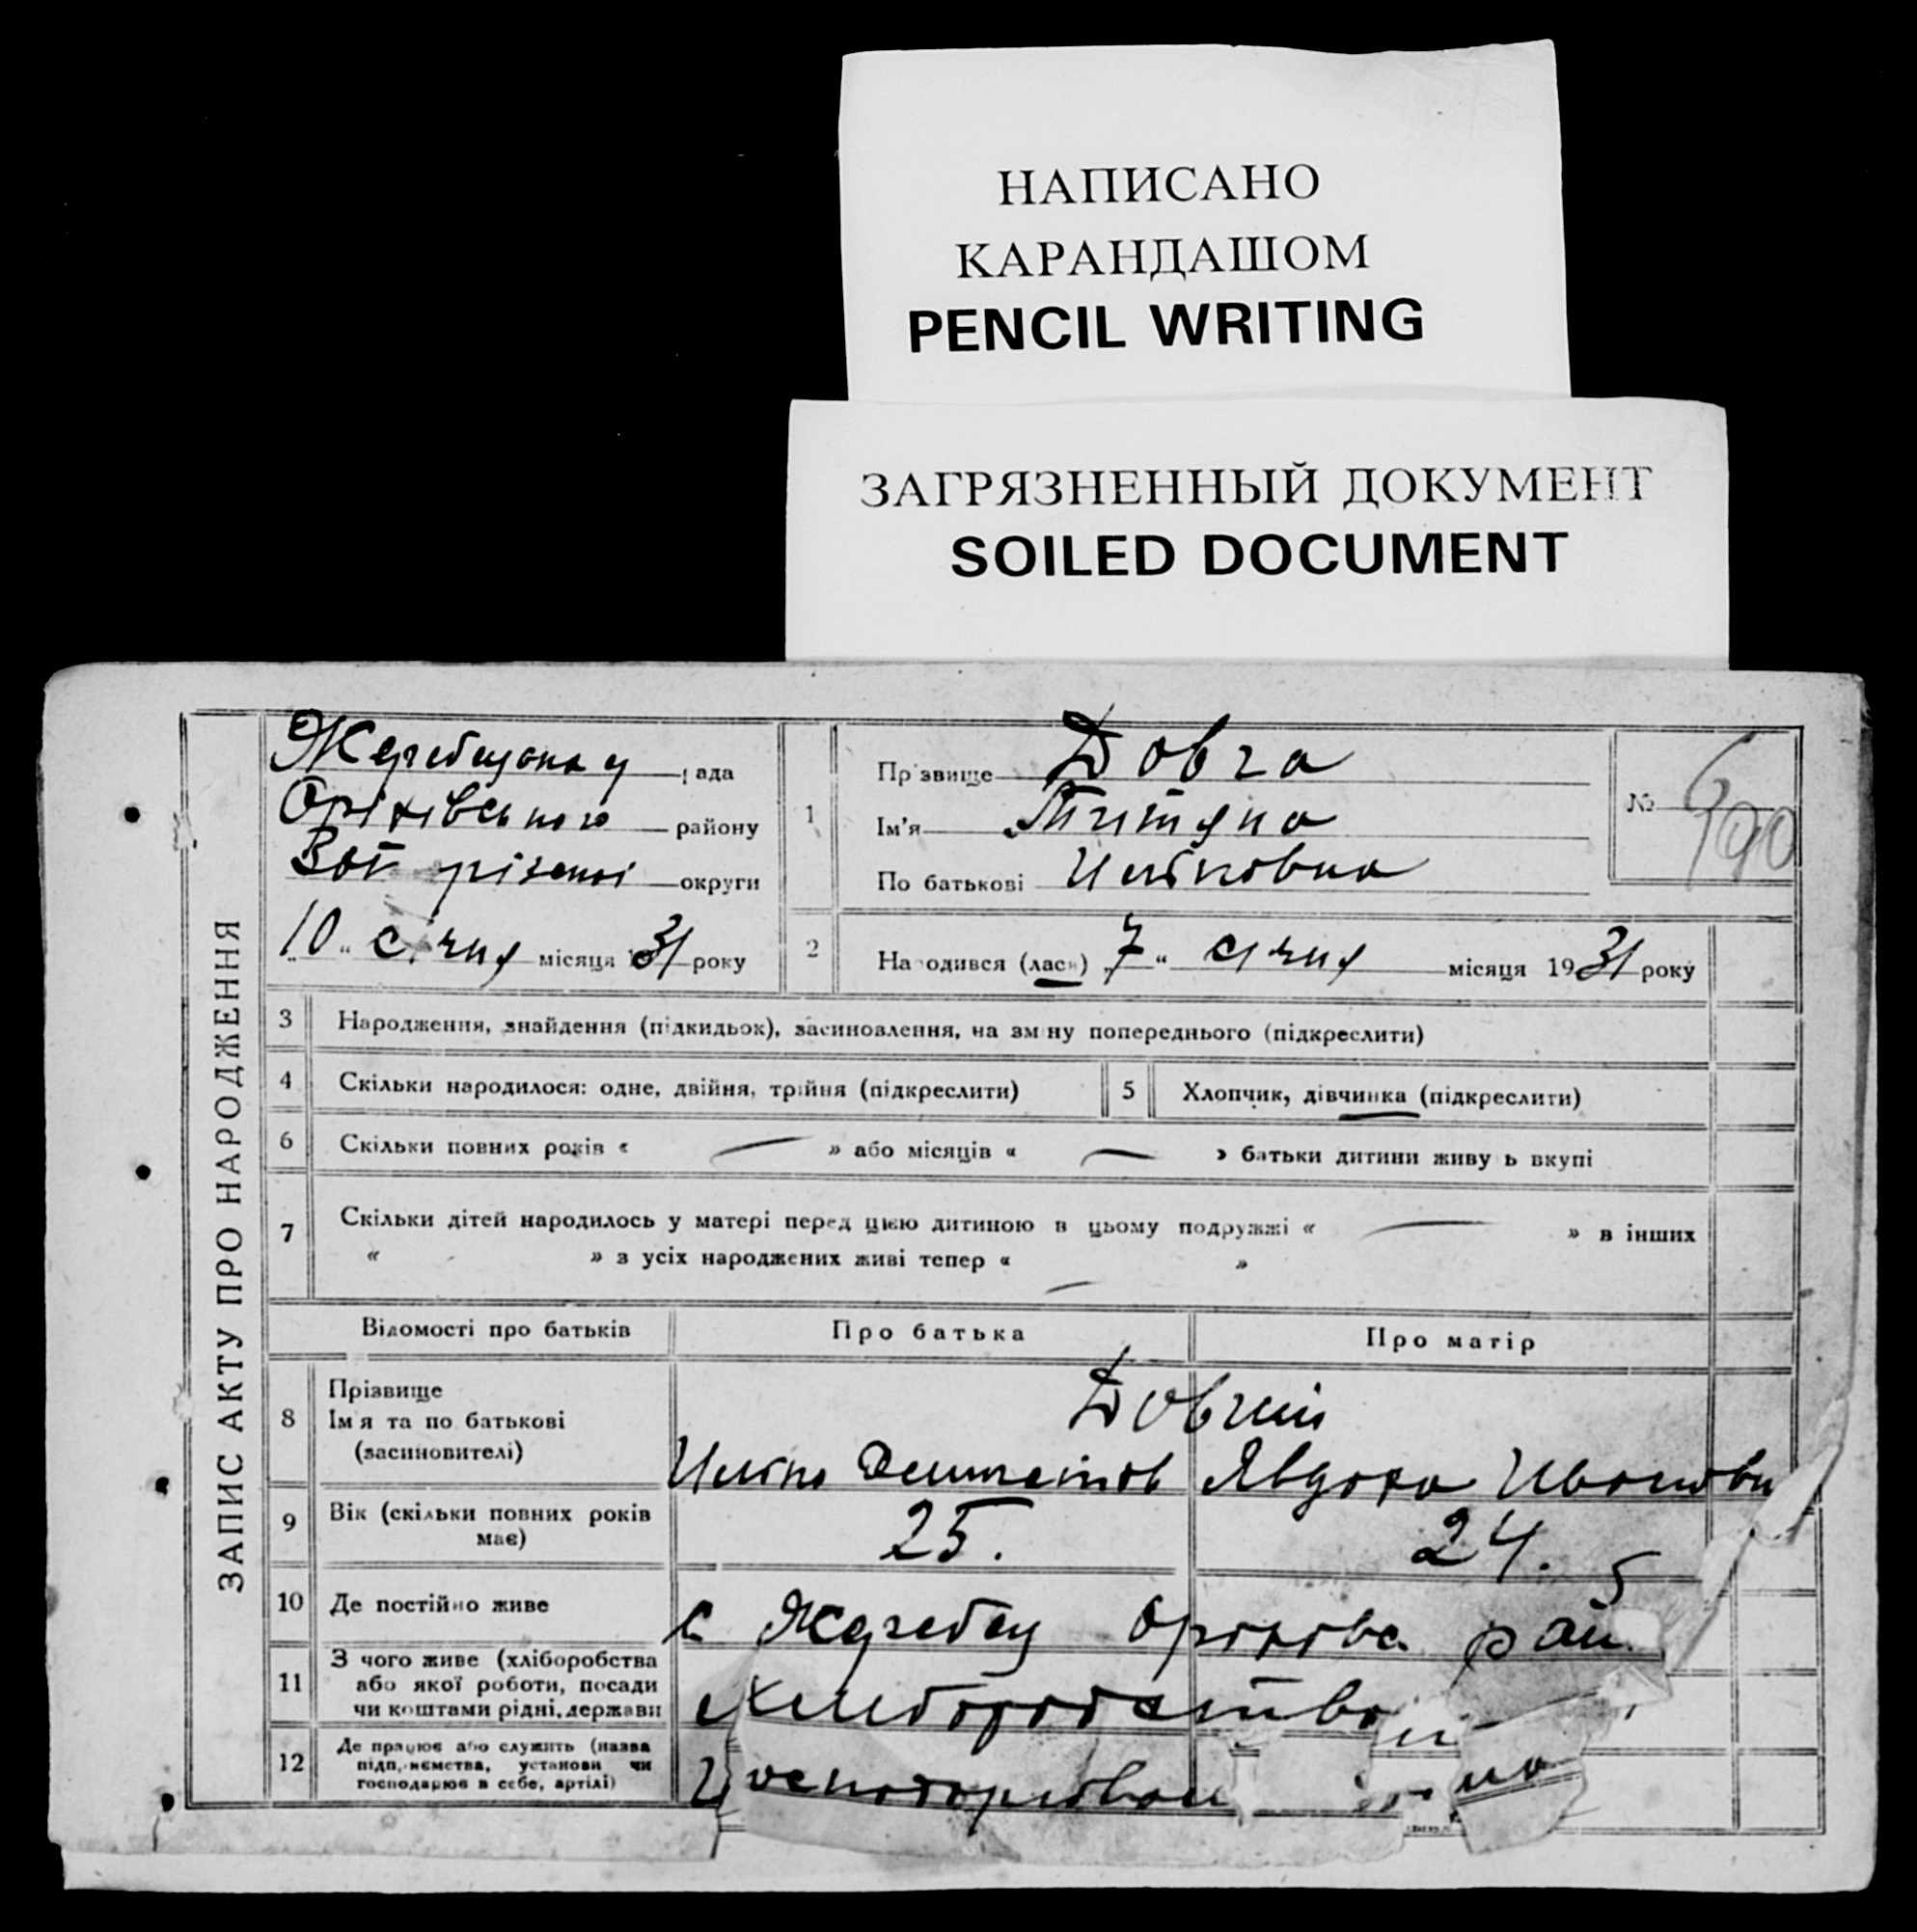 НАПИСАНО
КАРАНДАШОМ
PENCIL WRITING
ЗАГРЯЗНЕННЫЙ ДОКУМЕНТ
SOILED DOCUMENT
ЗАПИС АКТУ ПРО НАРОДЖЕННЯ
рада
Оріхівського району
округи
10 " січня місяця 31 року
1
Прізвище Довга
Ім'я Титяна
По батькові Ильковна
№
2
Народився (лася) „ 7 " січня місяця 1931 року
3 Народження, знайдення (підкидьок), засиновлення, на зміну попереднього (підкреслити)
4 Скільки народилося: одне, двійня, трійня (підкреслити) 5 Хлопчик, дівчинка (підкреслити)
6 Скільки повних років « — » або місяців « — » батьки дитини живуть вкупі
7 Скільки дітей народилось у матері перед цією дитиною в цьому подружжі « — » в інших
« » з усіх народжених живі тепер « — »
Відомості про батьків Про батька Про матір
8 Прізвище
Ім'я та по батькові
(засиновителі)
Довгий
Илько Явдоха Ивановн
9 Вік (скільки повних років
має)
25. 24.
10 Де постійно живе
с Жеребец Оріхівс рай.
11 З чого живе (хліборобства
або якої роботи, посади
чи коштами рідні, держави
хлиборобство
12 Де працює або служить (назва
підприємства, установи чи
господарює в себе, артілі)